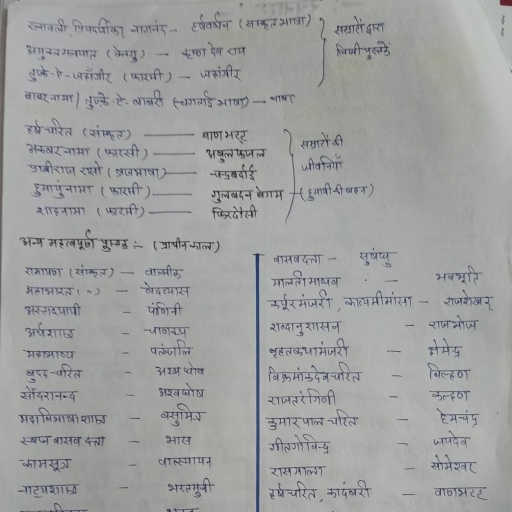 रत्नावली, प्रियदर्शिका नागानंद - हर्षवर्धन (संस्कृत भाषा)
सम्राटों द्वारा
लिखी पुस्तकें
अमुक्तमाल्यद (तेलगु) - कृष्ण देव राय
तुज्के-ऐ-जहाँगीर (फारसी) - जहांगीर
बाबरनामा / तुज्के-ऐ-बाबरी (चगताई भाषा) - बाबर
हर्षचरित (संस्कृत) - बाणभट्ट
सम्राटों की
जीवनियाँ
अकबरनामा (फारसी) - अबुल फजल
पृथ्वीराज रासो (ब्रजभाषा) - चन्द्रबरदाई
हुमायूंनामा (फारसी) - गुलबदन बेगम - (हुमायूँ की बहन)
शाहनामा (फारसी) - फिरदौसी
अन्य महत्वपूर्ण पुस्तक :- (प्राचीन काल)
रामायण (संस्कृत) - वाल्मीकि
महाभारत (") - वेदव्यास
अस्ताध्यायी - पाणिनी
अर्थशास्त्र - चाणक्य
महाभाष्य - पतंजलि
बुद्ध-चरित - अश्वघोष
सौंदरानन्द - अश्वघोष
महाविभाषाशास्त्र - वसुमित्र
स्वप्नवासवदत्ता - भास
कामसूत्र - वात्स्यायन
नाट्यशास्त्र - भरतमुनी
वासवदत्ता - सुबंधु
मालतीमाधव - भवभूति
कर्पूरमंजरी, काव्यमीमांसा - राजशेखर
शब्दानुशासन - राजभोज
बृहतकथामंजरी - क्षेमेन्द्र
विक्रमांकदेवचरित - बिल्हण
राजतरंगिणी - कल्हण
कुमारपाल चरित - हेमचंद्र
गीतगोविन्द - जयदेव
रासमाला - सोमेश्वर
हर्षचरित, कादंबरी - बाणभट्ट